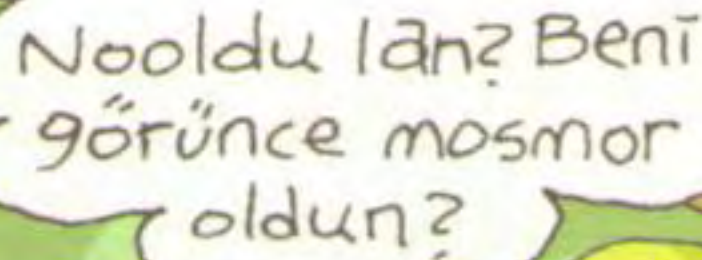 Nooldu lan? Beni
görünce mosmor
oldun?